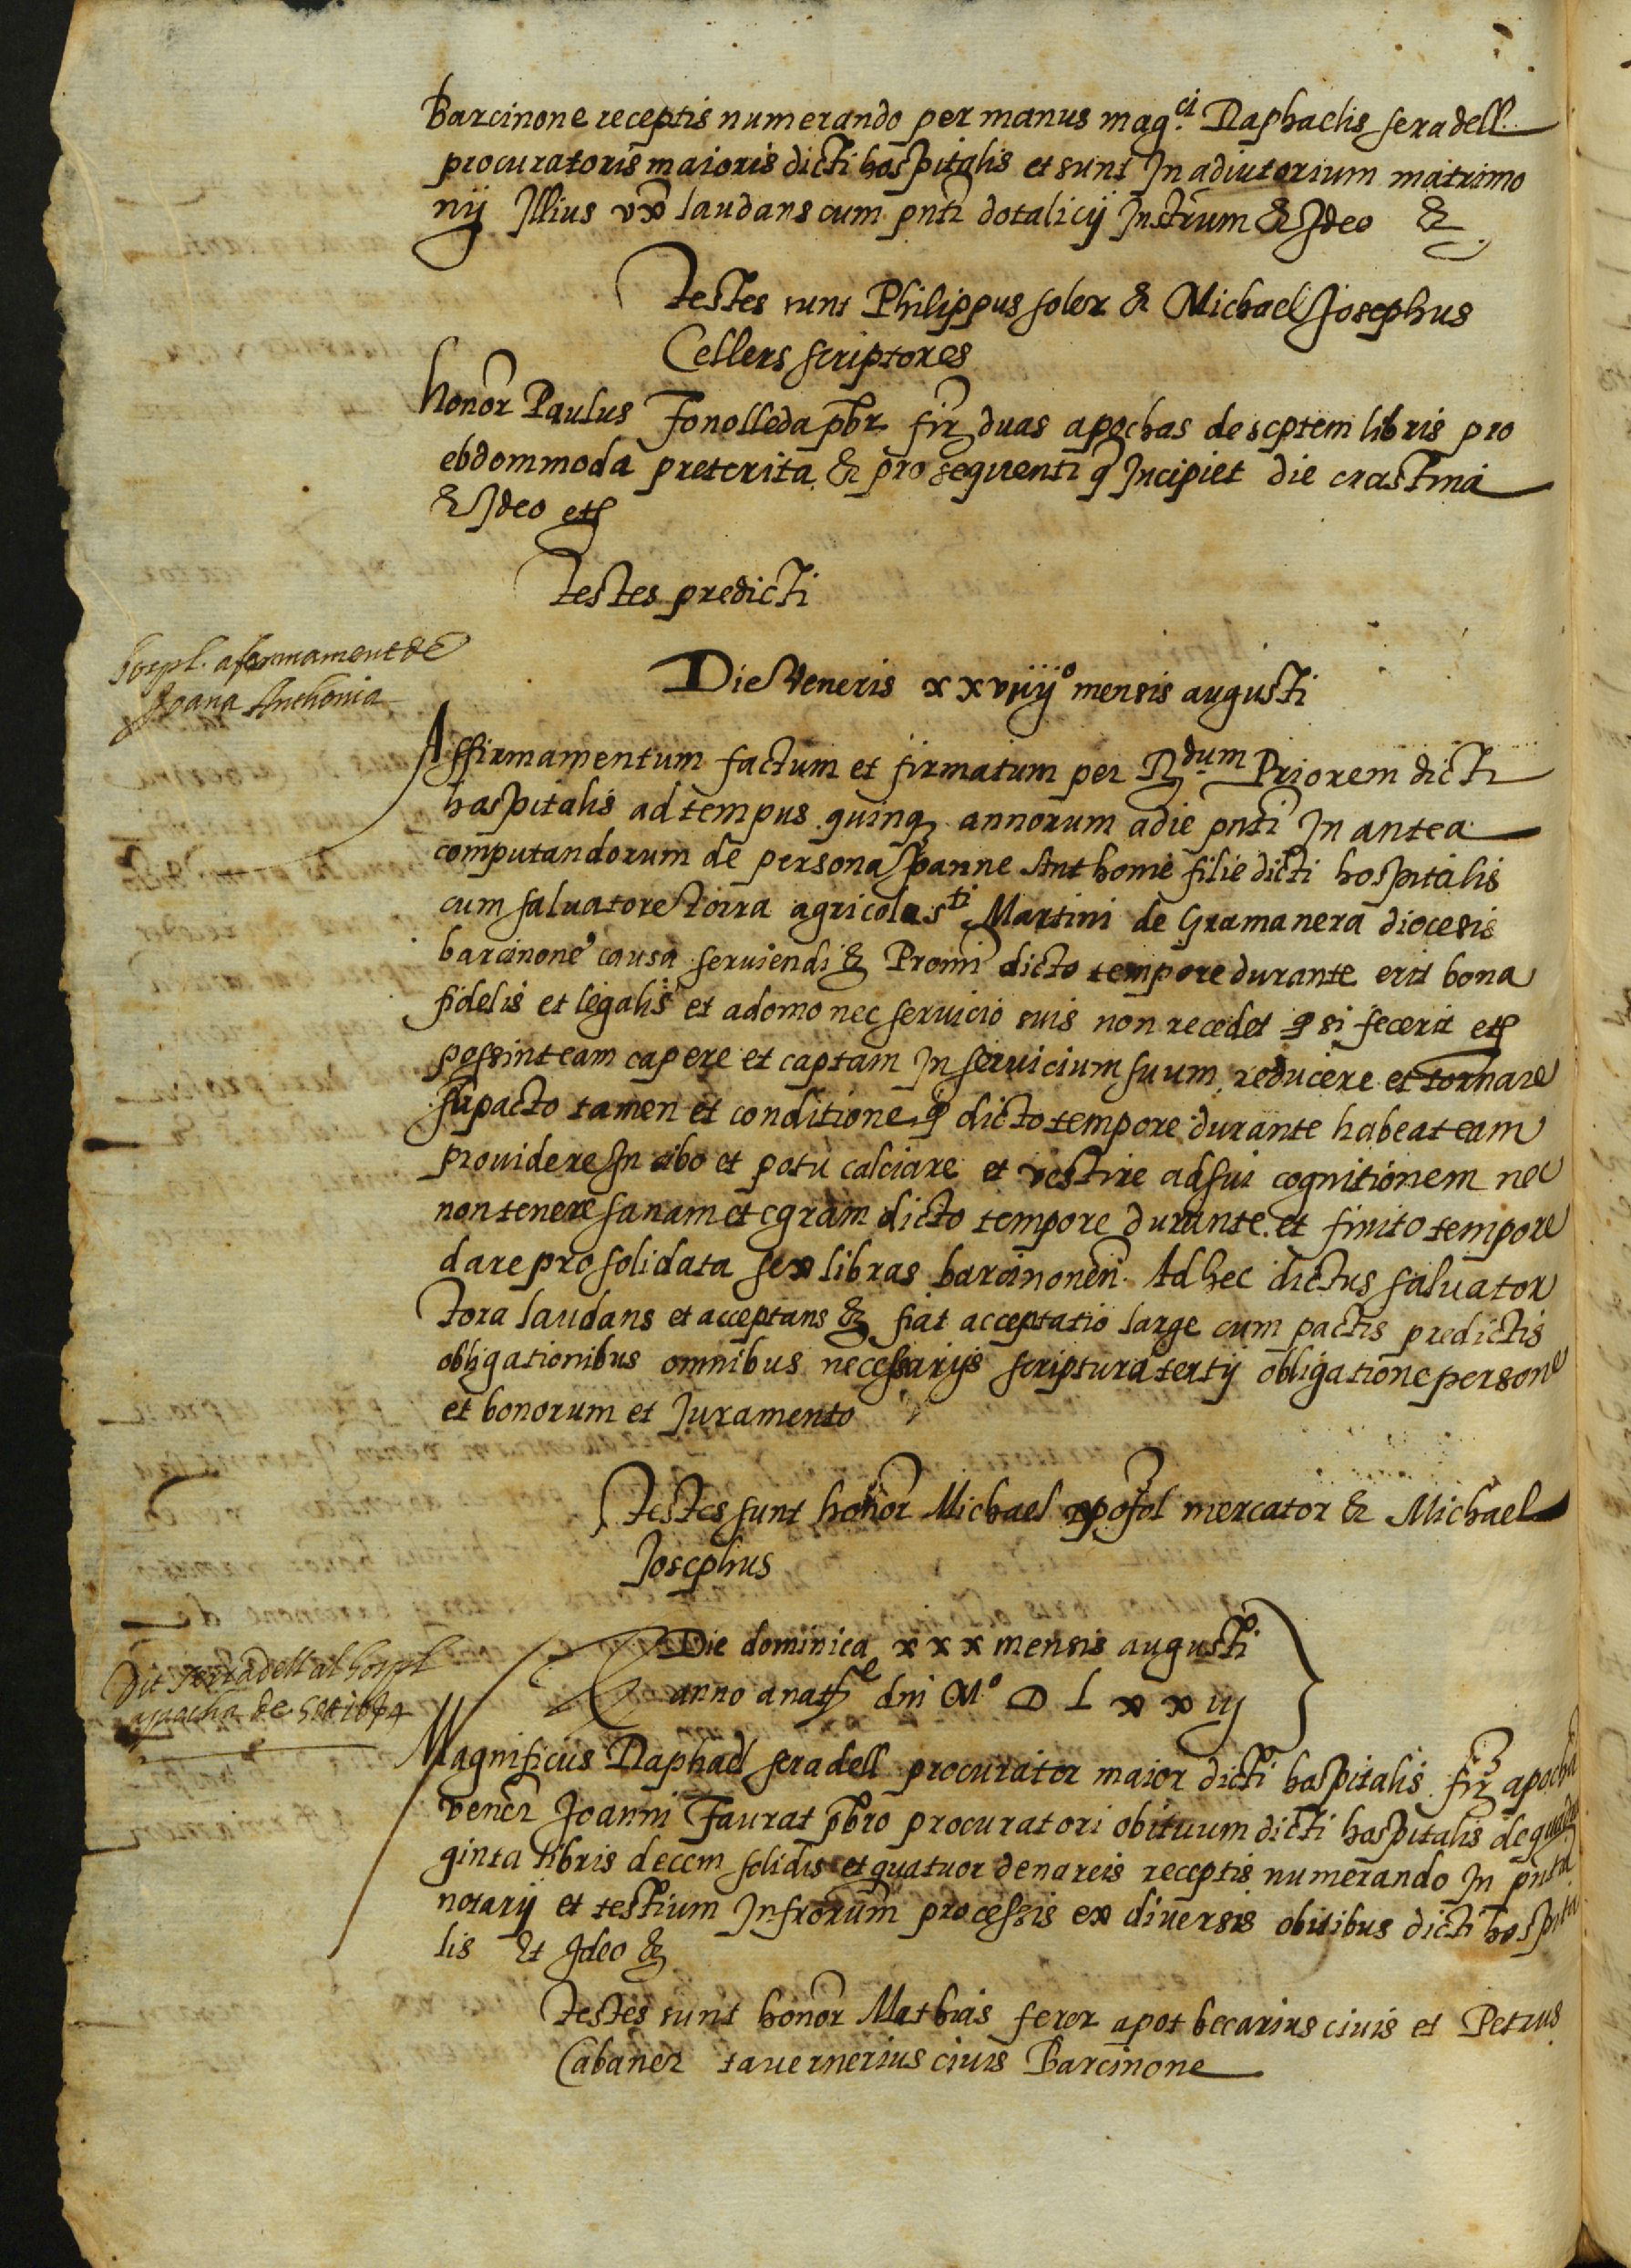 Barcinone receptis numerando per manus mag.ci Raphaelis seradell
procuratoris maioris dicti hospitalis et sunt In adiutorium matrimo
nij Illius vx laudans cum pnti dotalicij Instrum & Ideo &
Testes sunt Philippus soler & Michael Josephus
Cellers scriptores
honor Paulus Fonolleda pbr fir duas apochas de septem libris pro
ebdommoda preterita & pro sequenti q Incipiet die crastina
& Ideo etc
Testes predicti
hospl. afermament de
Joana Anthonia
Die Veneris xxviiij° mensis augusti
Affirmamentum factum et firmatum per Rdum Priorem dicti
hospitalis ad tempus quinq annorum a die pnti In antea
computandorum de persona Joanne Anthonie filie dicti hospitalis
cum saluatore Toira agricola sti Martini de Gramanera diocesis
barcinone causa seruiendi & Promi dicto tempore durante erit bona
fidelis et legalis et a domo nec seruicio suis non recedet q si fecerit etc
possint eam capere et captam In seruicium suum reducere et tornare
su pacto tamen et conditione q dicto tempore durante habeat eam
prouidere In cibo et potu calciare et vestire ad sui cognitionem nec
non tenere sanam et egram dicto tempore durante et finito tempore
dare pro solidata sex libras barcinonen Ad hec dictus saluator
Tora laudans et acceptans & fiat acceptatio large cum pactis predictis
obligationibus omnibus necessarijs scriptura tertij obligatione persone
et bonorum et Juramento
Testes sunt honor Michael apostol mercator & Michael
Josephus
Die dominica xxx mensis augusti
anno a nate dni M° D L xx iij
Dit Serradell al hospl
apocha de
Magnificus Raphael seradell procurator maior dicti hospitalis fir apocha
vener Joanni Faurat pbro procuratori obituum dicti hospitalis de quadra
ginta libris decem solidis et quatuor denareis receptis numerando In pntia
notarij et testium Infrorum processis ex diuersis obitibus dicti hospita
lis Et Ideo &
Testes sunt honor Mathias ferer apothecarius ciuis et Petrus
Cabaner tauernerius ciuis Barcinone